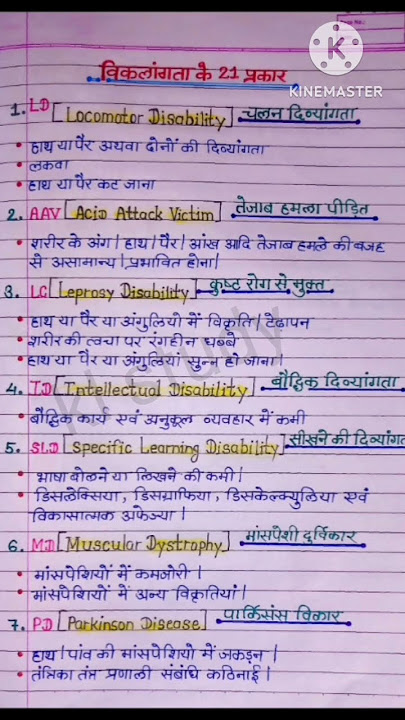 KINEMASTER
विकलांगता के 21 प्रकार
1. LD [Locomotor Disability] चलन दिव्यांगता
• हाथ या पैर अथवा दोनों की दिव्यांगता
• लकवा
• हाथ या पैर कट जाना
2. AAV [Acid Attack Victim] तेजाब हमला पीड़ित
• शरीर के अंग | हाथ | पैर | आंख आदि तेजाब हमले की वजह
से असामान्य | प्रभावित होना |
3. LC [Leprosy Disability] कुष्ट रोग से मुक्त
• हाथ या पैर या अंगुलियो में विकृति | टेढ़ापन
• शरीर की त्वचा पर रंगहीन धब्बे
• हाथ या पैर या अंगुलियां सुन्न हो जाना |
4. ID [Intellectual Disability] बौद्धिक दिव्यांगता
• बौद्धिक कार्य एवं अनुकूल व्यवहार में कमी
5. SLD [Specific Learning Disability] सीखने की दिव्यांगत
• भाषा बोलने या लिखने की कमी |
• डिसलेक्सिया, डिसग्राफिया, डिसकेल्क्युलिया एवं
विकासात्मक अफेज्या |
6. MD [Muscular Dystrophy] मांसपेशी दुर्विकार
• मांसपेशियों में कमजोरी |
• मांसपेशियों में अन्य विकृतियां |
7. PD [Parkinson Disease] पार्किसंस विकार
• हाथ | पांव की मांसपेशियो में जकड़न |
• तंत्रिका तंत्र प्रणाली संबंधि कठिनाई |